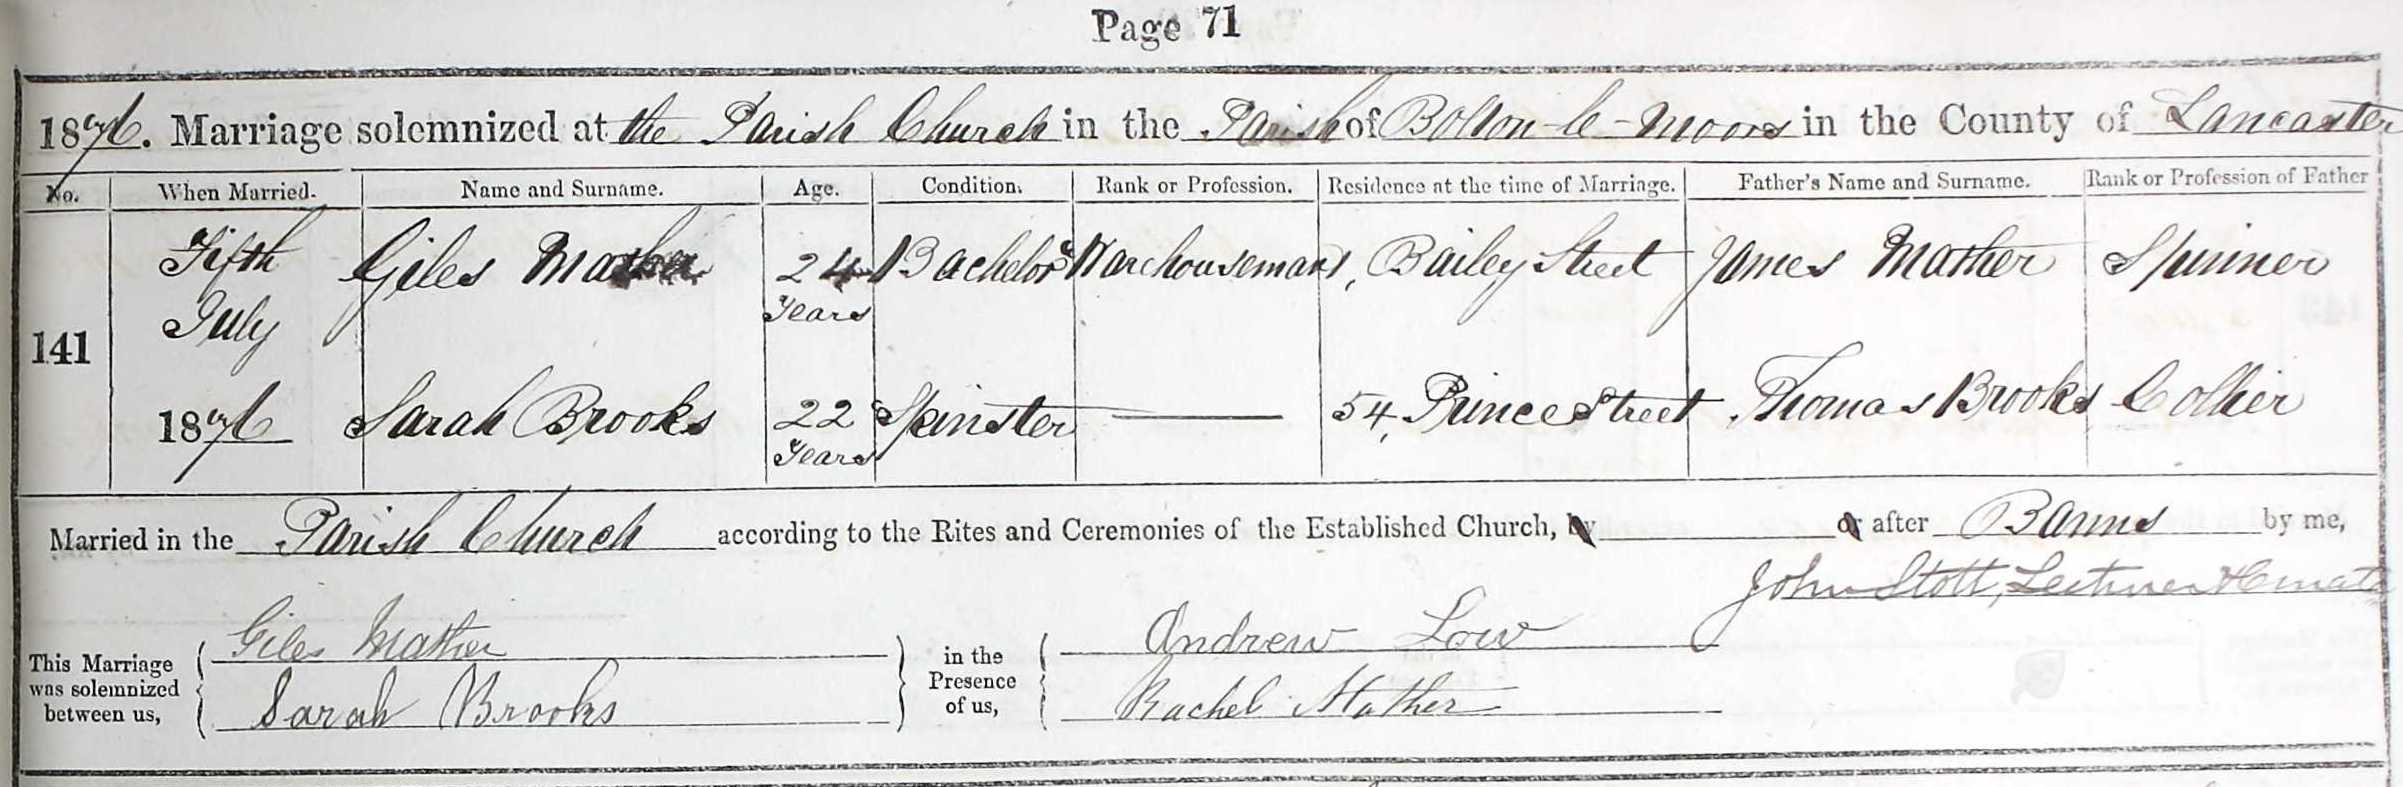 Page 71
1876. Marriage solemnized at the Parish Church in the Parish of Bolton-le-Moors in the County of Lancaster
No. When Married. Name and Surname. Age. Condition. Rank or Profession. Residence at the time of Marriage. Father's Name and Surname. Rank or Profession of Father
141
Fifth Giles Mather 24 Bachelor Warehouseman 1, Bailey Street James Mather Spinner
July Years
1876 Sarah Brooks 22 Spinster 54, Prince Street Thomas Brooks Collier
Years
Married in the Parish Church according to the Rites and Ceremonies of the Established Church, by or after Banns by me,
John Stott, Lecturer & Curate
This Marriage was solemnized between us,
Giles Mather
Sarah Brooks
in the Presence of us,
Andrew Low
Rachel Mather